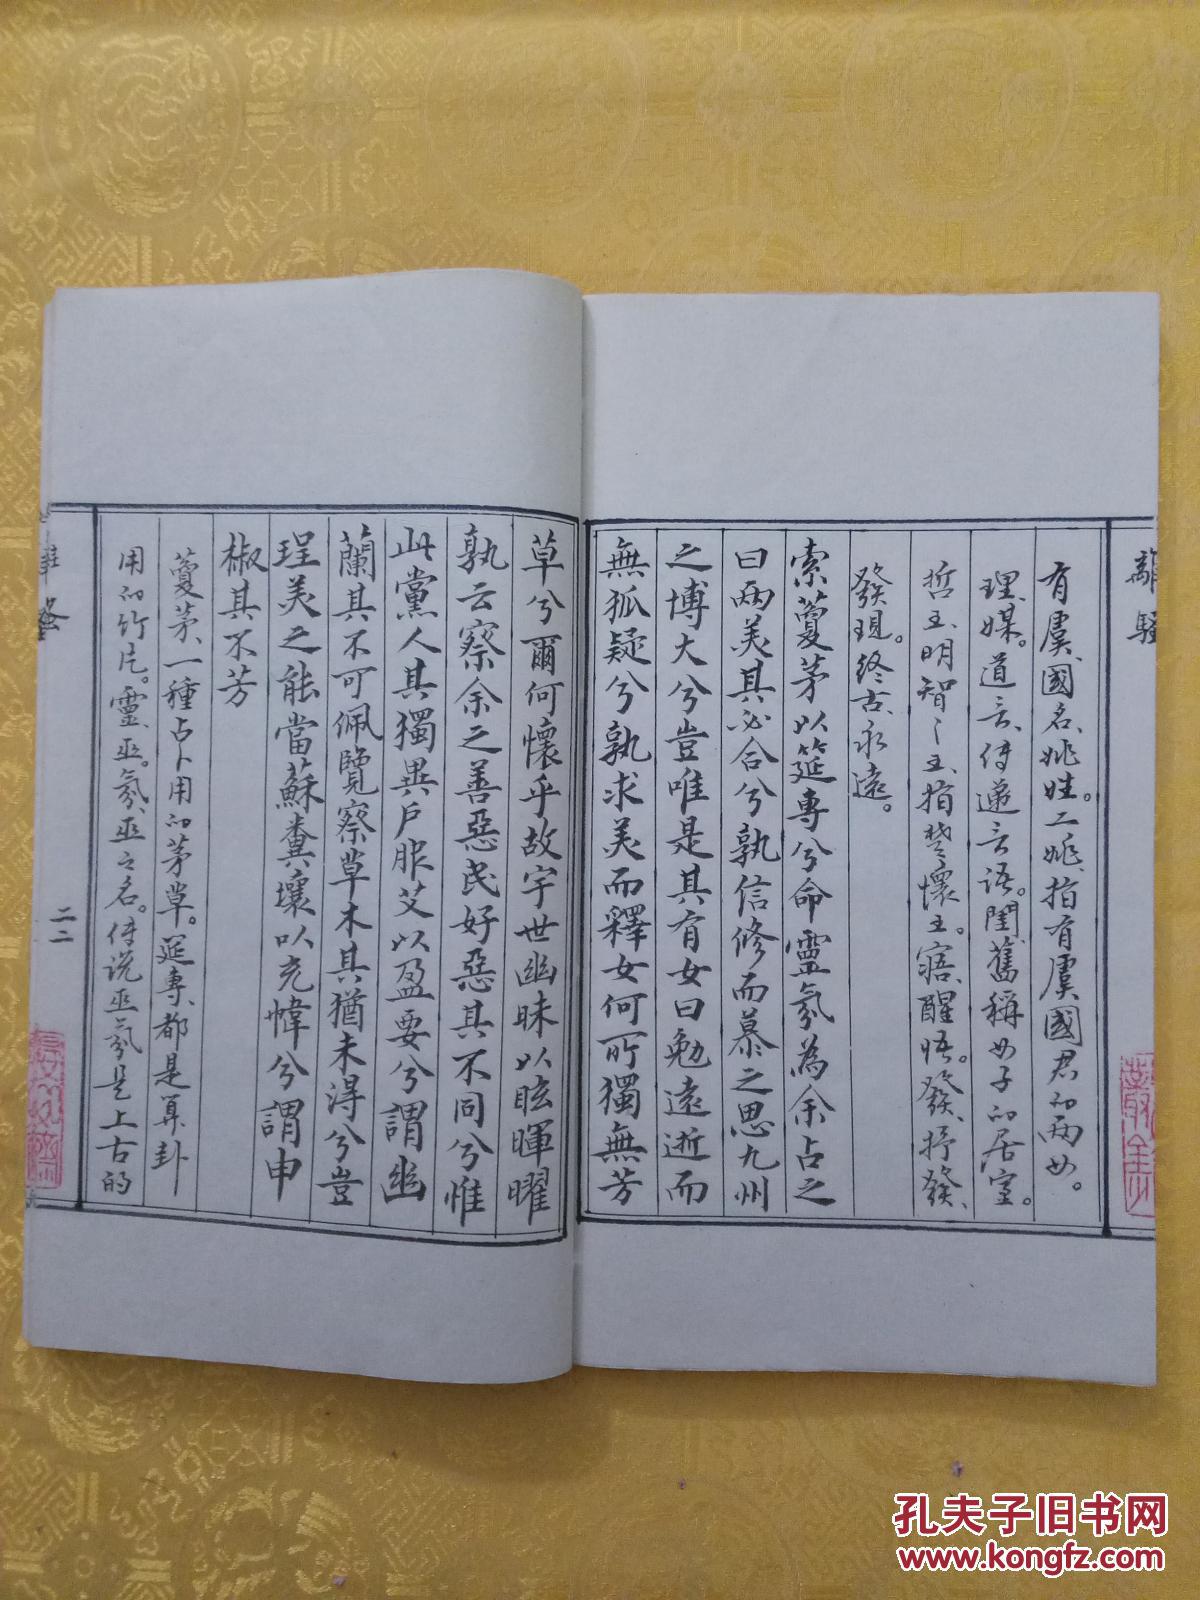 離騷
有虞、國名、姚姓。二姚、指有虞國君的兩女。
理、媒。道言、傳遞言語。閨、舊稱女子的居室。
哲王、明智之王、指楚懷王。寤、醒悟。發、抒發、
發現。終古、永遠。
索藑茅以筳專兮命靈氛為余占之
曰兩美其必合兮孰信修而慕之思九州
之博大兮豈唯是其有女曰勉遠逝而
無狐疑兮孰求美而釋女何所獨無芳
草兮爾何懷乎故宇世幽昧以眩曜
孰云察余之善惡民好惡其不同兮惟
此黨人其獨異戶服艾以盈要兮謂幽
蘭其不可佩覽察草木其猶未得兮豈
珵美之能當蘇糞壤以充幃兮謂申
椒其不芳
藑茅、一種占卜用的茅草。筳專、都是算卦
用的竹片。靈、巫。氛、巫之名。傳說巫氛是上古的
離騷
二二
孔夫子旧书网
www.kongfz.com